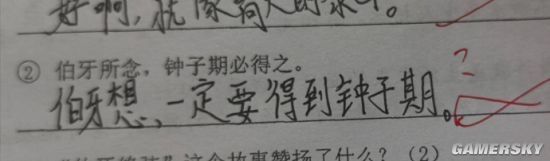 好啊,就像
② 伯牙所念,钟子期必得之。
?
伯牙想,一定要得到钟子期。
这个故事赞扬了什么?(2)
GAMERSKY